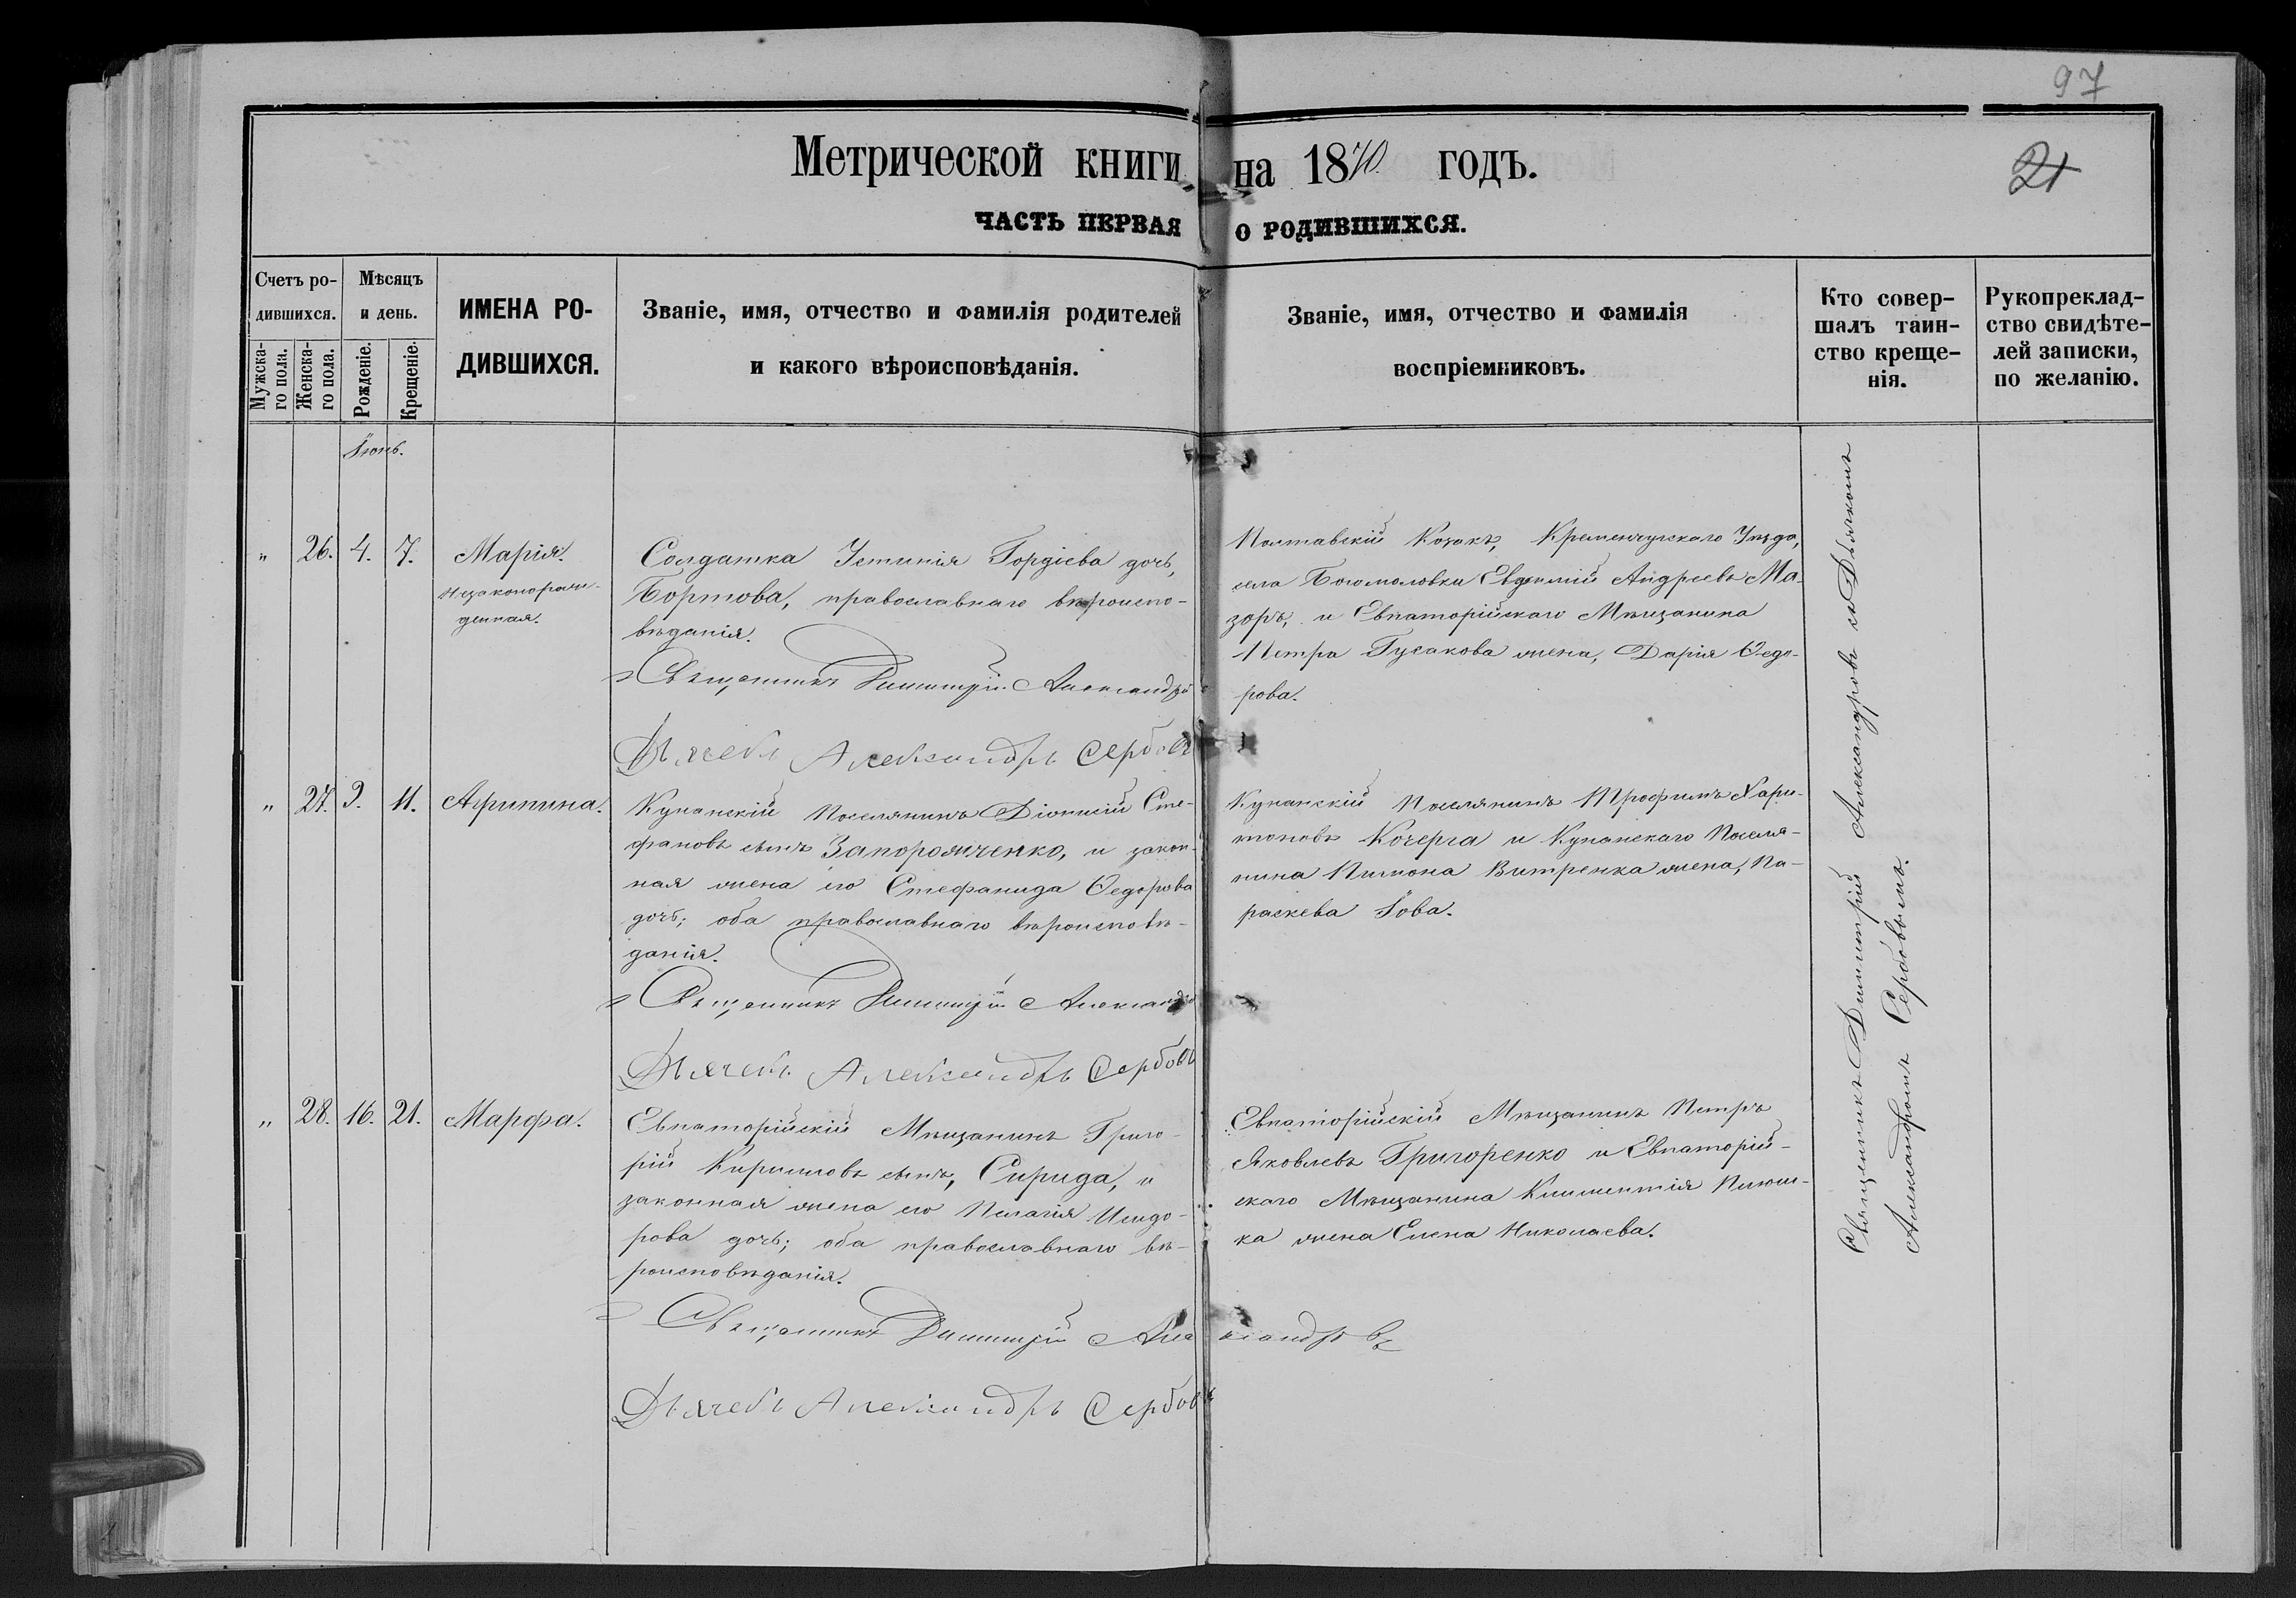 97
Метрической книги на 1870 годъ.
21
ЧАСТЬ ПЕРВАЯ О РОДИВШИХСЯ.
Счетъ ро-
дившихся.
Мужска-
го пола.
Женска-
го пола.
Мѣсяцъ
и день.
Рожденіе.
Крещеніе.
ИМЕНА РО-
ДИВШИХСЯ.
Званіе, имя, отчество и фамилія родителей
и какого вѣроисповѣданія.
Званіе, имя, отчество и фамилія
воспріемниковъ.
Кто совер-
шалъ таин-
ство креще-
нія.
Рукоприклад-
ство свидѣте-
лей записки,
по желанію.
Іюнь.
" 26. 4. 7. Марія.
Незаконорож-
денная.
Солдатка Устинія Гордіева дочь,
Бортова, православнаго вѣроиспо-
вѣданія.
Священникъ Димитрій Александро
Дьячекъ Александръ Сербовъ
Полтавскій Козакъ, Кременчугскаго Уѣзда,
села Богомоловки Евдокимъ Андреевъ Ма-
зоръ, и Евпаторійскаго Мѣщанина
Петра Гусакова жена, Дарія Ѳедо-
рова.
" 27. 9. 11. Агрипина.
Куманскій Поселянинъ Діонисій Сте-
фановъ сынъ Запорожченко, и закон-
ная жена его Стефанида Ѳедорова
дочь; оба православнаго вѣроисповѣ-
данія.
Священникъ Димитрій Александро
Дьячекъ Александръ Сербовъ
Куманскій Поселянинъ Трофимъ Хари-
тоновъ Кочерга и Куманскаго Поселя-
нина Пимона Витренка жена, Па-
раскева Іова.
" 28. 16. 21. Марфа.
Евпаторійскій Мѣщанинъ Григо-
рій Кирилловъ сынъ, Сирида, и
законная жена его Пелагія Исидо-
рова дочь; оба православнаго вѣ-
роисповѣданія.
Священникъ Димитрій Александровъ
Дьячекъ Александръ Сербовъ
Евпаторійскій Мѣщанинъ Петръ
Яковлевъ Григоренко и Евпаторій-
скаго Мѣщанина Климентія
ка жена Елена Николаева.
Священникъ Димитрій Александровъ съ Дьячкомъ
Александромъ Сербовымъ.